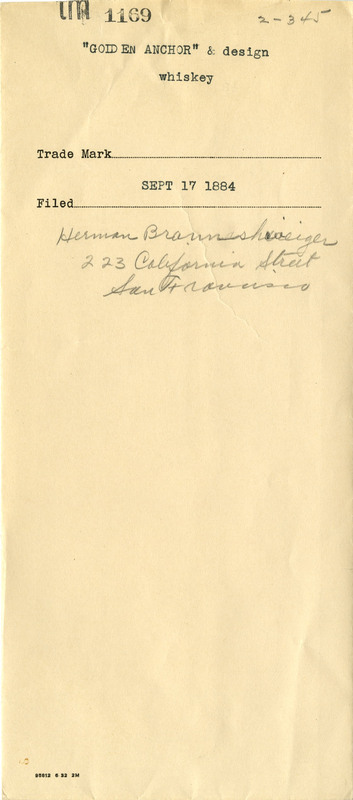 1169 2-345
"GOLDEN ANCHOR" & design
whiskey
Trade Mark
SEPT 17 1884
Filed
Herman Braunashweiger
223 California Street
San Francisco